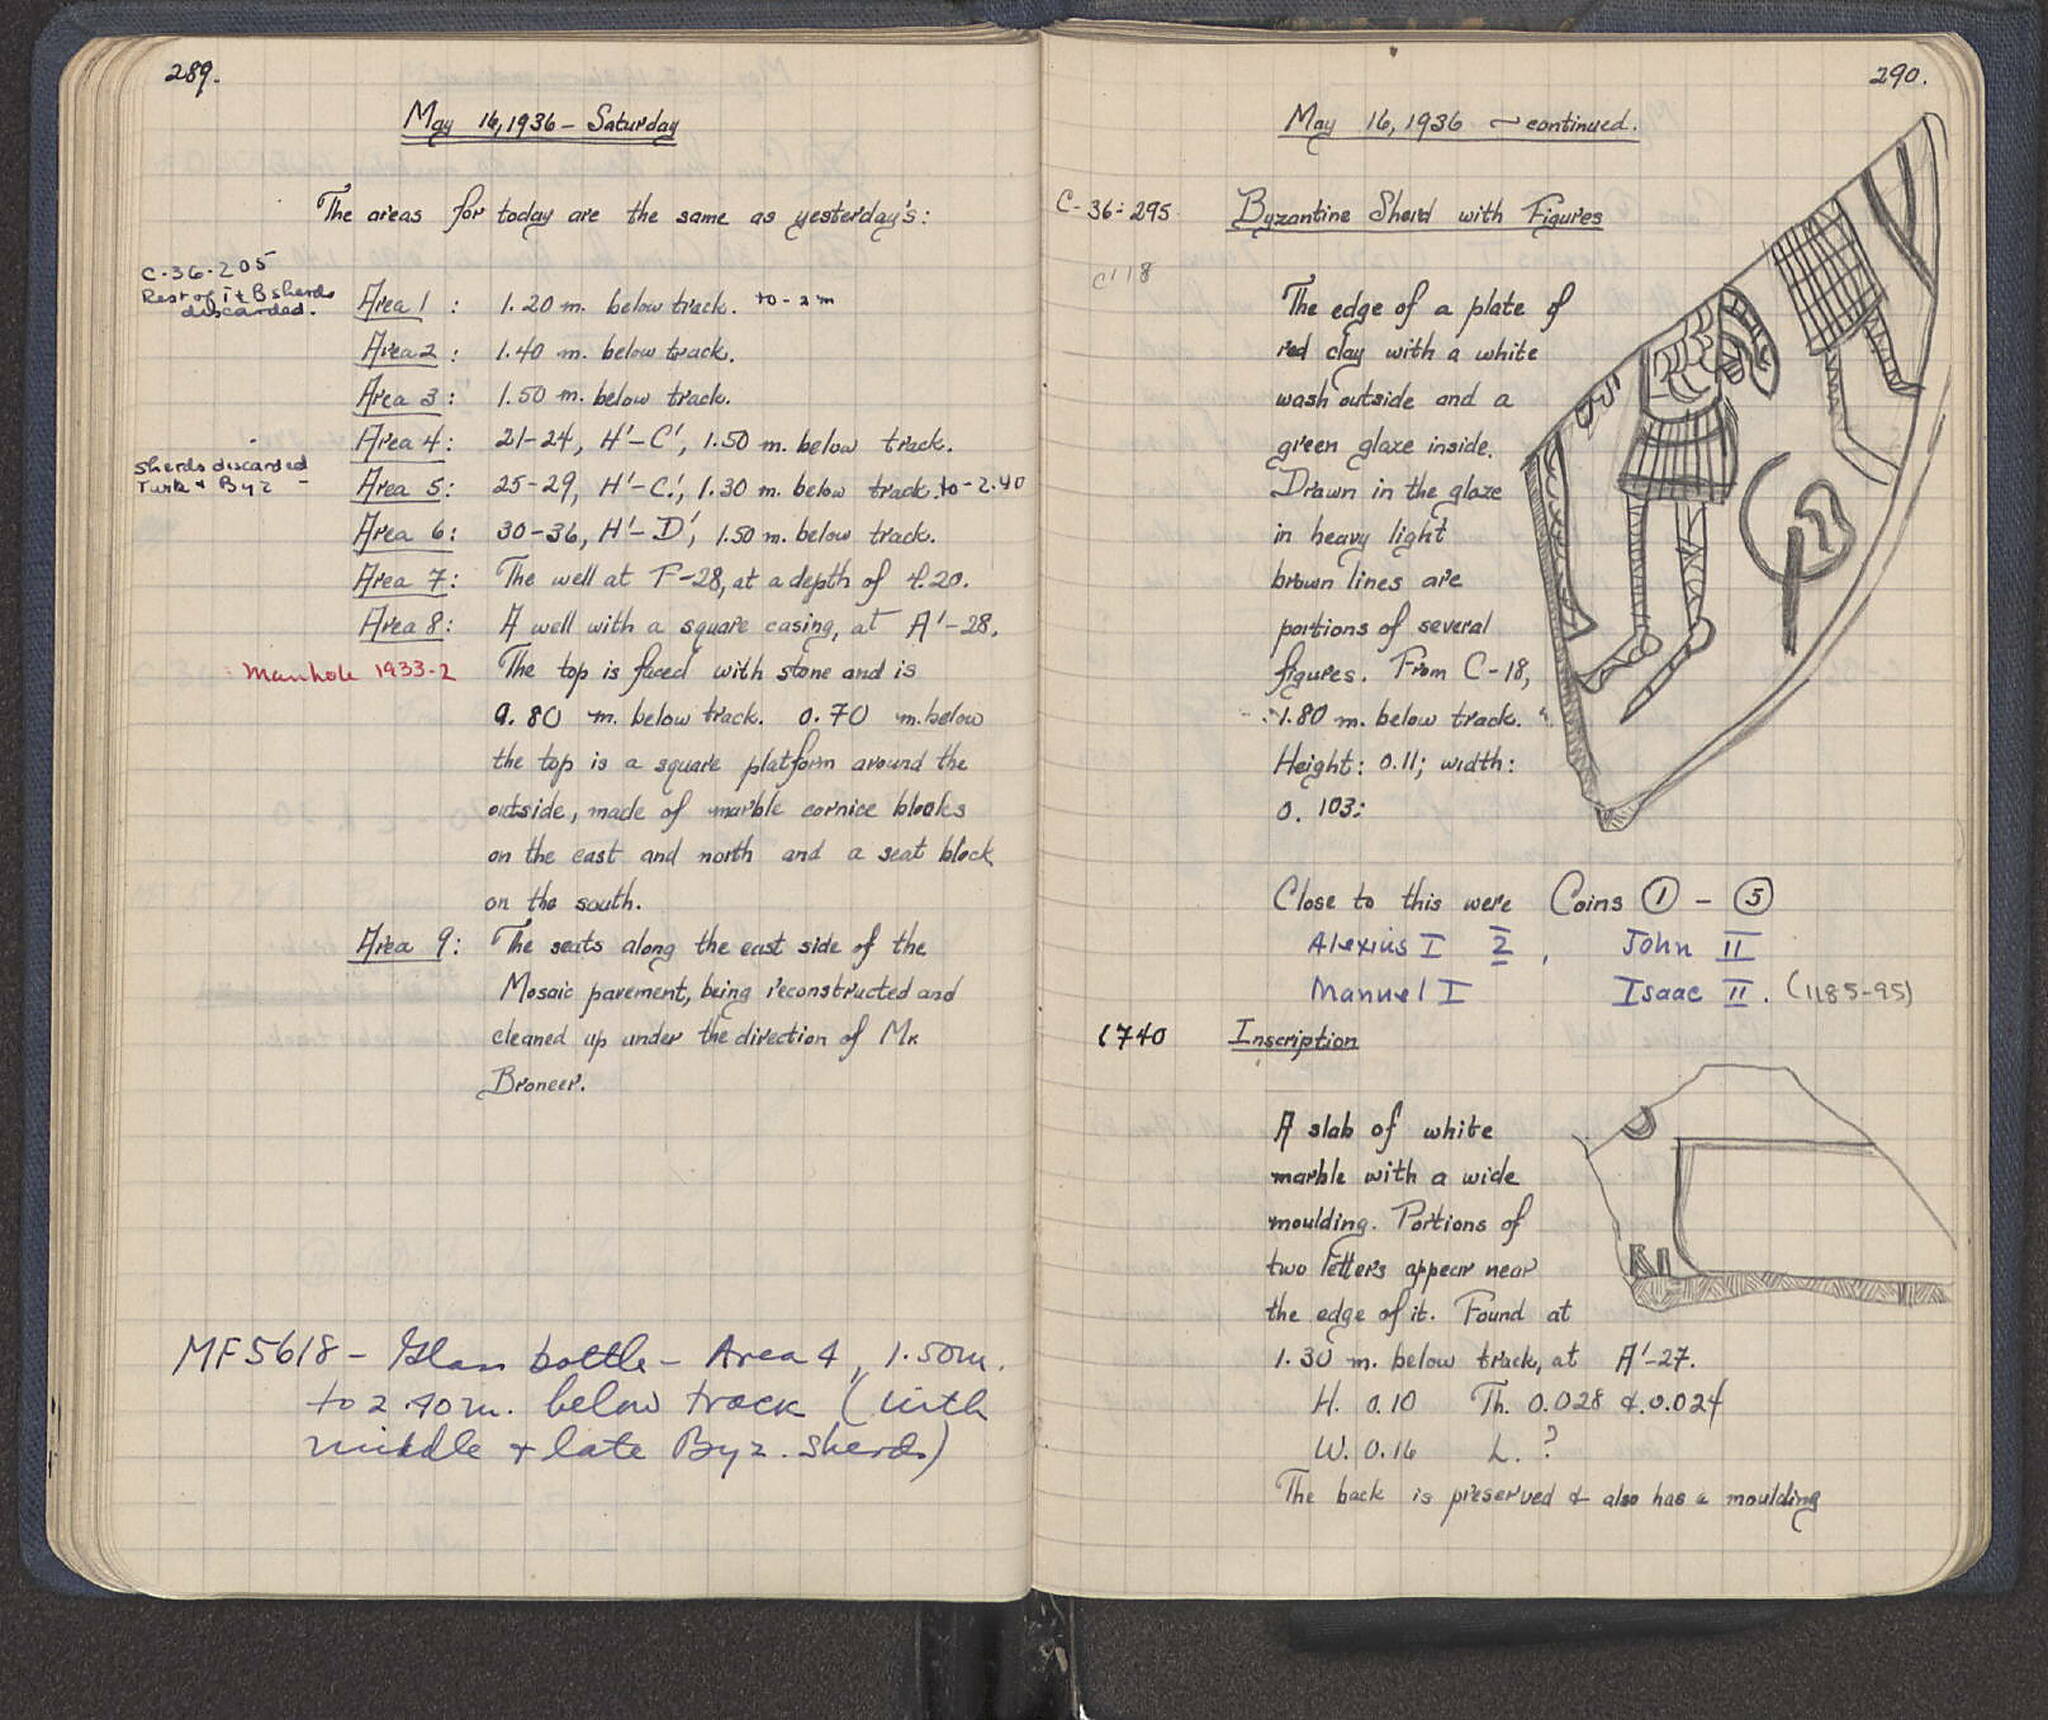 289.
May 16, 1936 – Saturday
The areas for today are the same as yesterday's:
C-36-205
Rest of T + B sherds
discarded.
Area 1 : 1.20 m. below track. to - 2 m
Area 2 : 1.40 m. below track.
Area 3 : 1.50 m. below track.
Area 4 : 21-24, H'-C', 1.50 m. below track.
Sherds discarded
Turk + Byz –
Area 5 : 25-29, H'-C', 1.30 m. below track. to - 2.40
Area 6 : 30-36, H'-D', 1.50 m. below track.
Area 7 : The well at F-28, at a depth of 4.20.
Area 8 : A well with a square casing, at A'-28.
Manhole 1933-2
The top is faced with stone and is
0.80 m. below track. 0.70 m. below
the top is a square platform around the
outside, made of marble cornice blocks
on the east and north and a seat block
on the south.
Area 9 : The seats along the east side of the
Mosaic pavement, being reconstructed and
cleaned up under the direction of Mr.
Broneer.
MF5618 – Glass bottle – Area 4, 1.50m.
to 2.40m. below track (with
middle + late Byz. sherds)
290.
May 16, 1936 – continued.
C-36-295 Byzantine Sherd with Figures
C'18
The edge of a plate of
red clay with a white
wash outside and a
green glaze inside.
Drawn in the glaze
in heavy light
brown lines are
portions of several
figures. From C-18,
1.80 m. below track.
Height: 0.11; width:
0.103:
Close to this were Coins ① – ⑤
Alexius I 2, John II
Manuel I Isaac II. (1185-95)
1740 Inscription
A slab of white
marble with a wide
moulding. Portions of
two letters appear near
the edge of it. Found at
1.30 m. below track, at A'-27.
H. 0.10 Th. 0.028 & 0.024
W. 0.16 L. ?
The back is preserved & also has a moulding